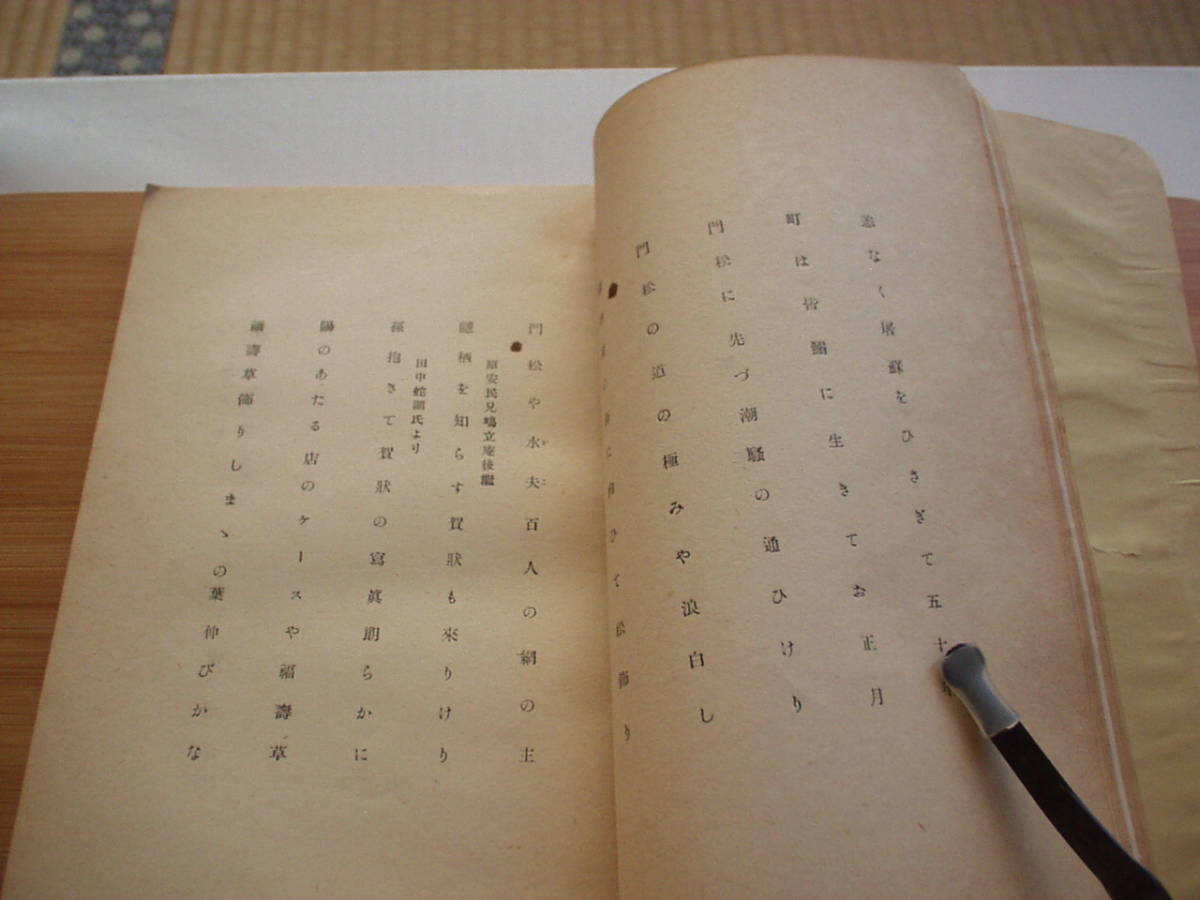 恙なく屠蘇をひさぎて五十年
町は皆鰯に生きてお正月
門松に先づ潮騒の通ひけり
門松の道の極みや浪白し
松飾り
門松や水夫百人の網の主
原安民兄鴫立庵後繼
隱栖を知らす賀狀も來りけり
田中蛇湖氏より
孫抱きて賀狀の寫眞朗らかに
陽のあたる店のケースや福壽草
福壽草飾りしまゝの葉伸びかな